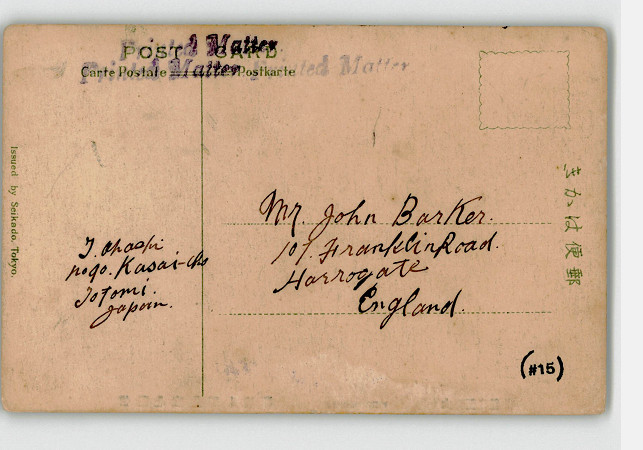 POST CARD
Printed Matter
Carte Postale Postkarte
Printed Matter Printed Matter
Issued by Seikado, Tokyo.
きかは便郵
Mr. John Barker.
107. Franklin Road.
Harrogate
England.
T. Ohashi
no 90. Kasai-cho
Totomi.
Japan.
(#15)